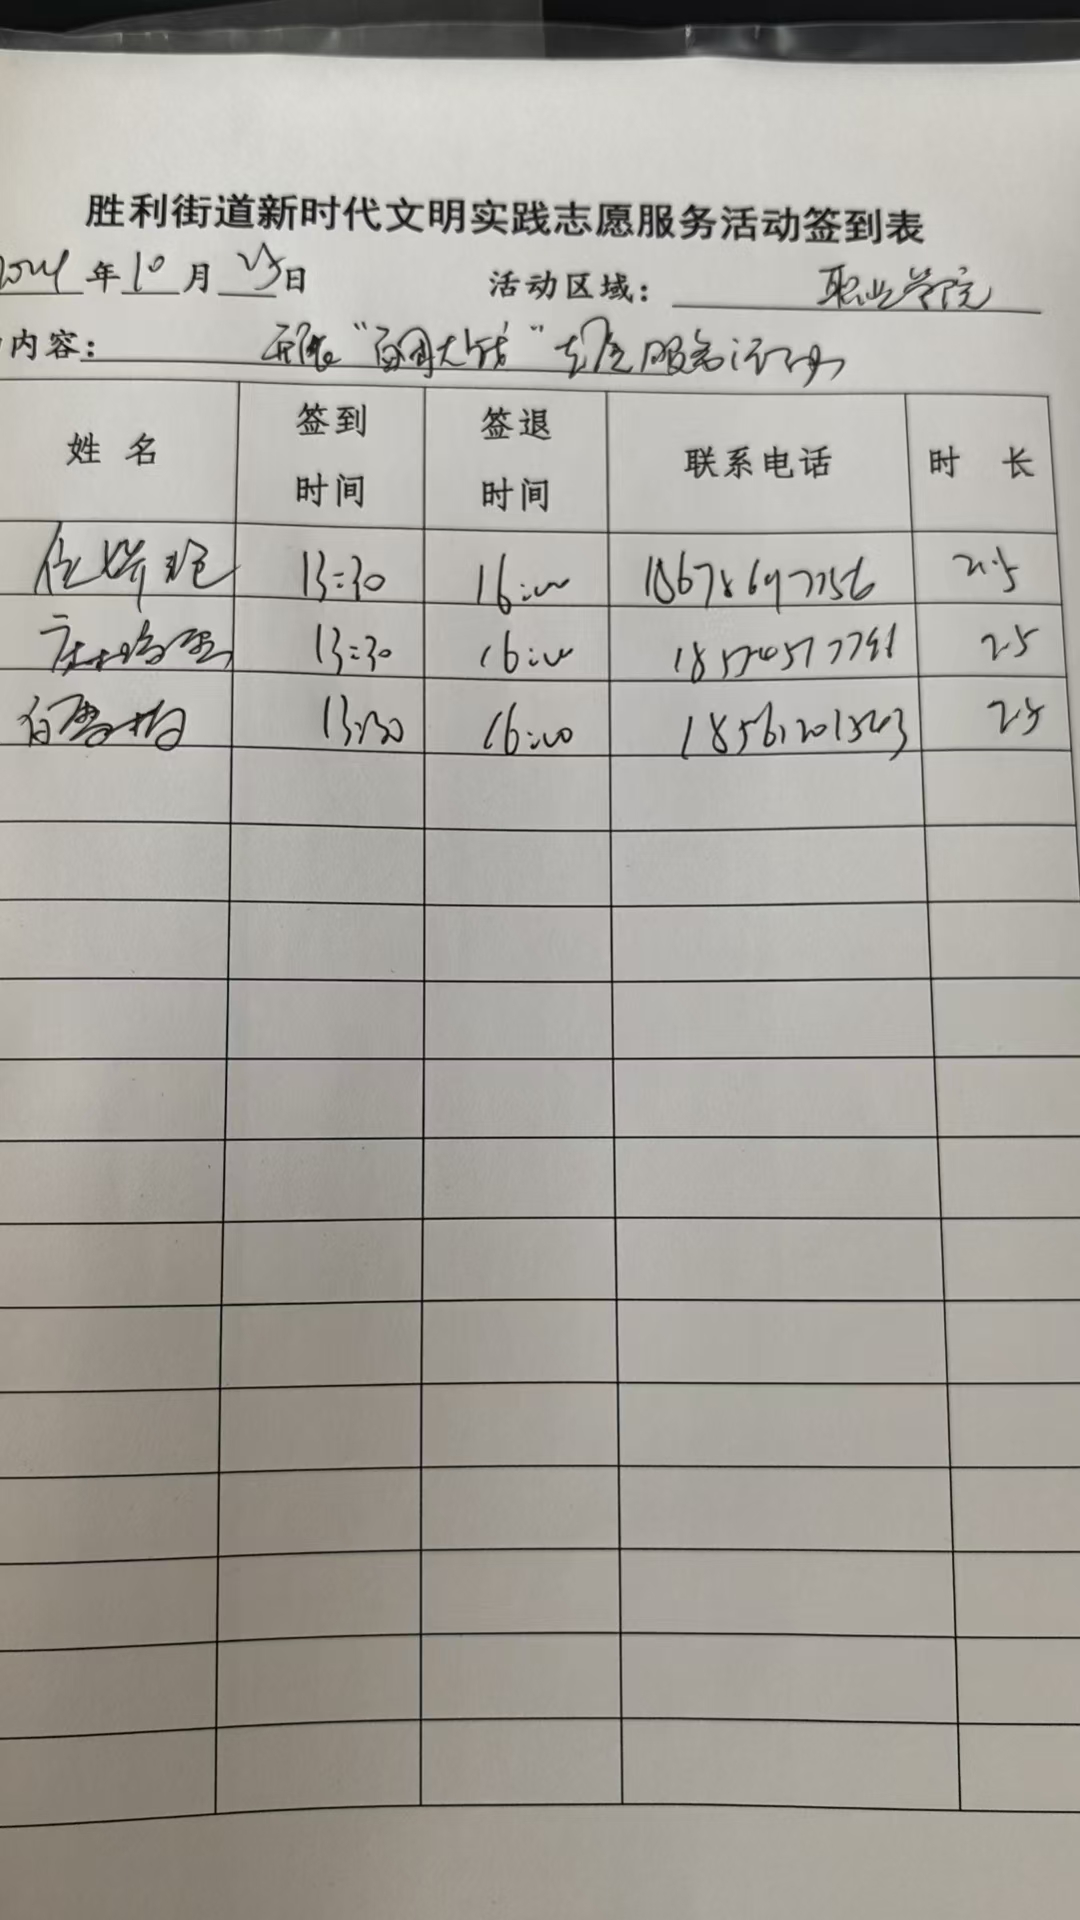 胜利街道新时代文明实践志愿服务活动签到表
2024年10月25日 活动区域：职业学院
内容：开展“百团大战”志愿服务活动
姓名 签到时间 签退时间 联系电话 时长
13:30 16:00 18678697756 2.5
13:30 16:00 2.5
13:30 16:00 18561201563 2.5